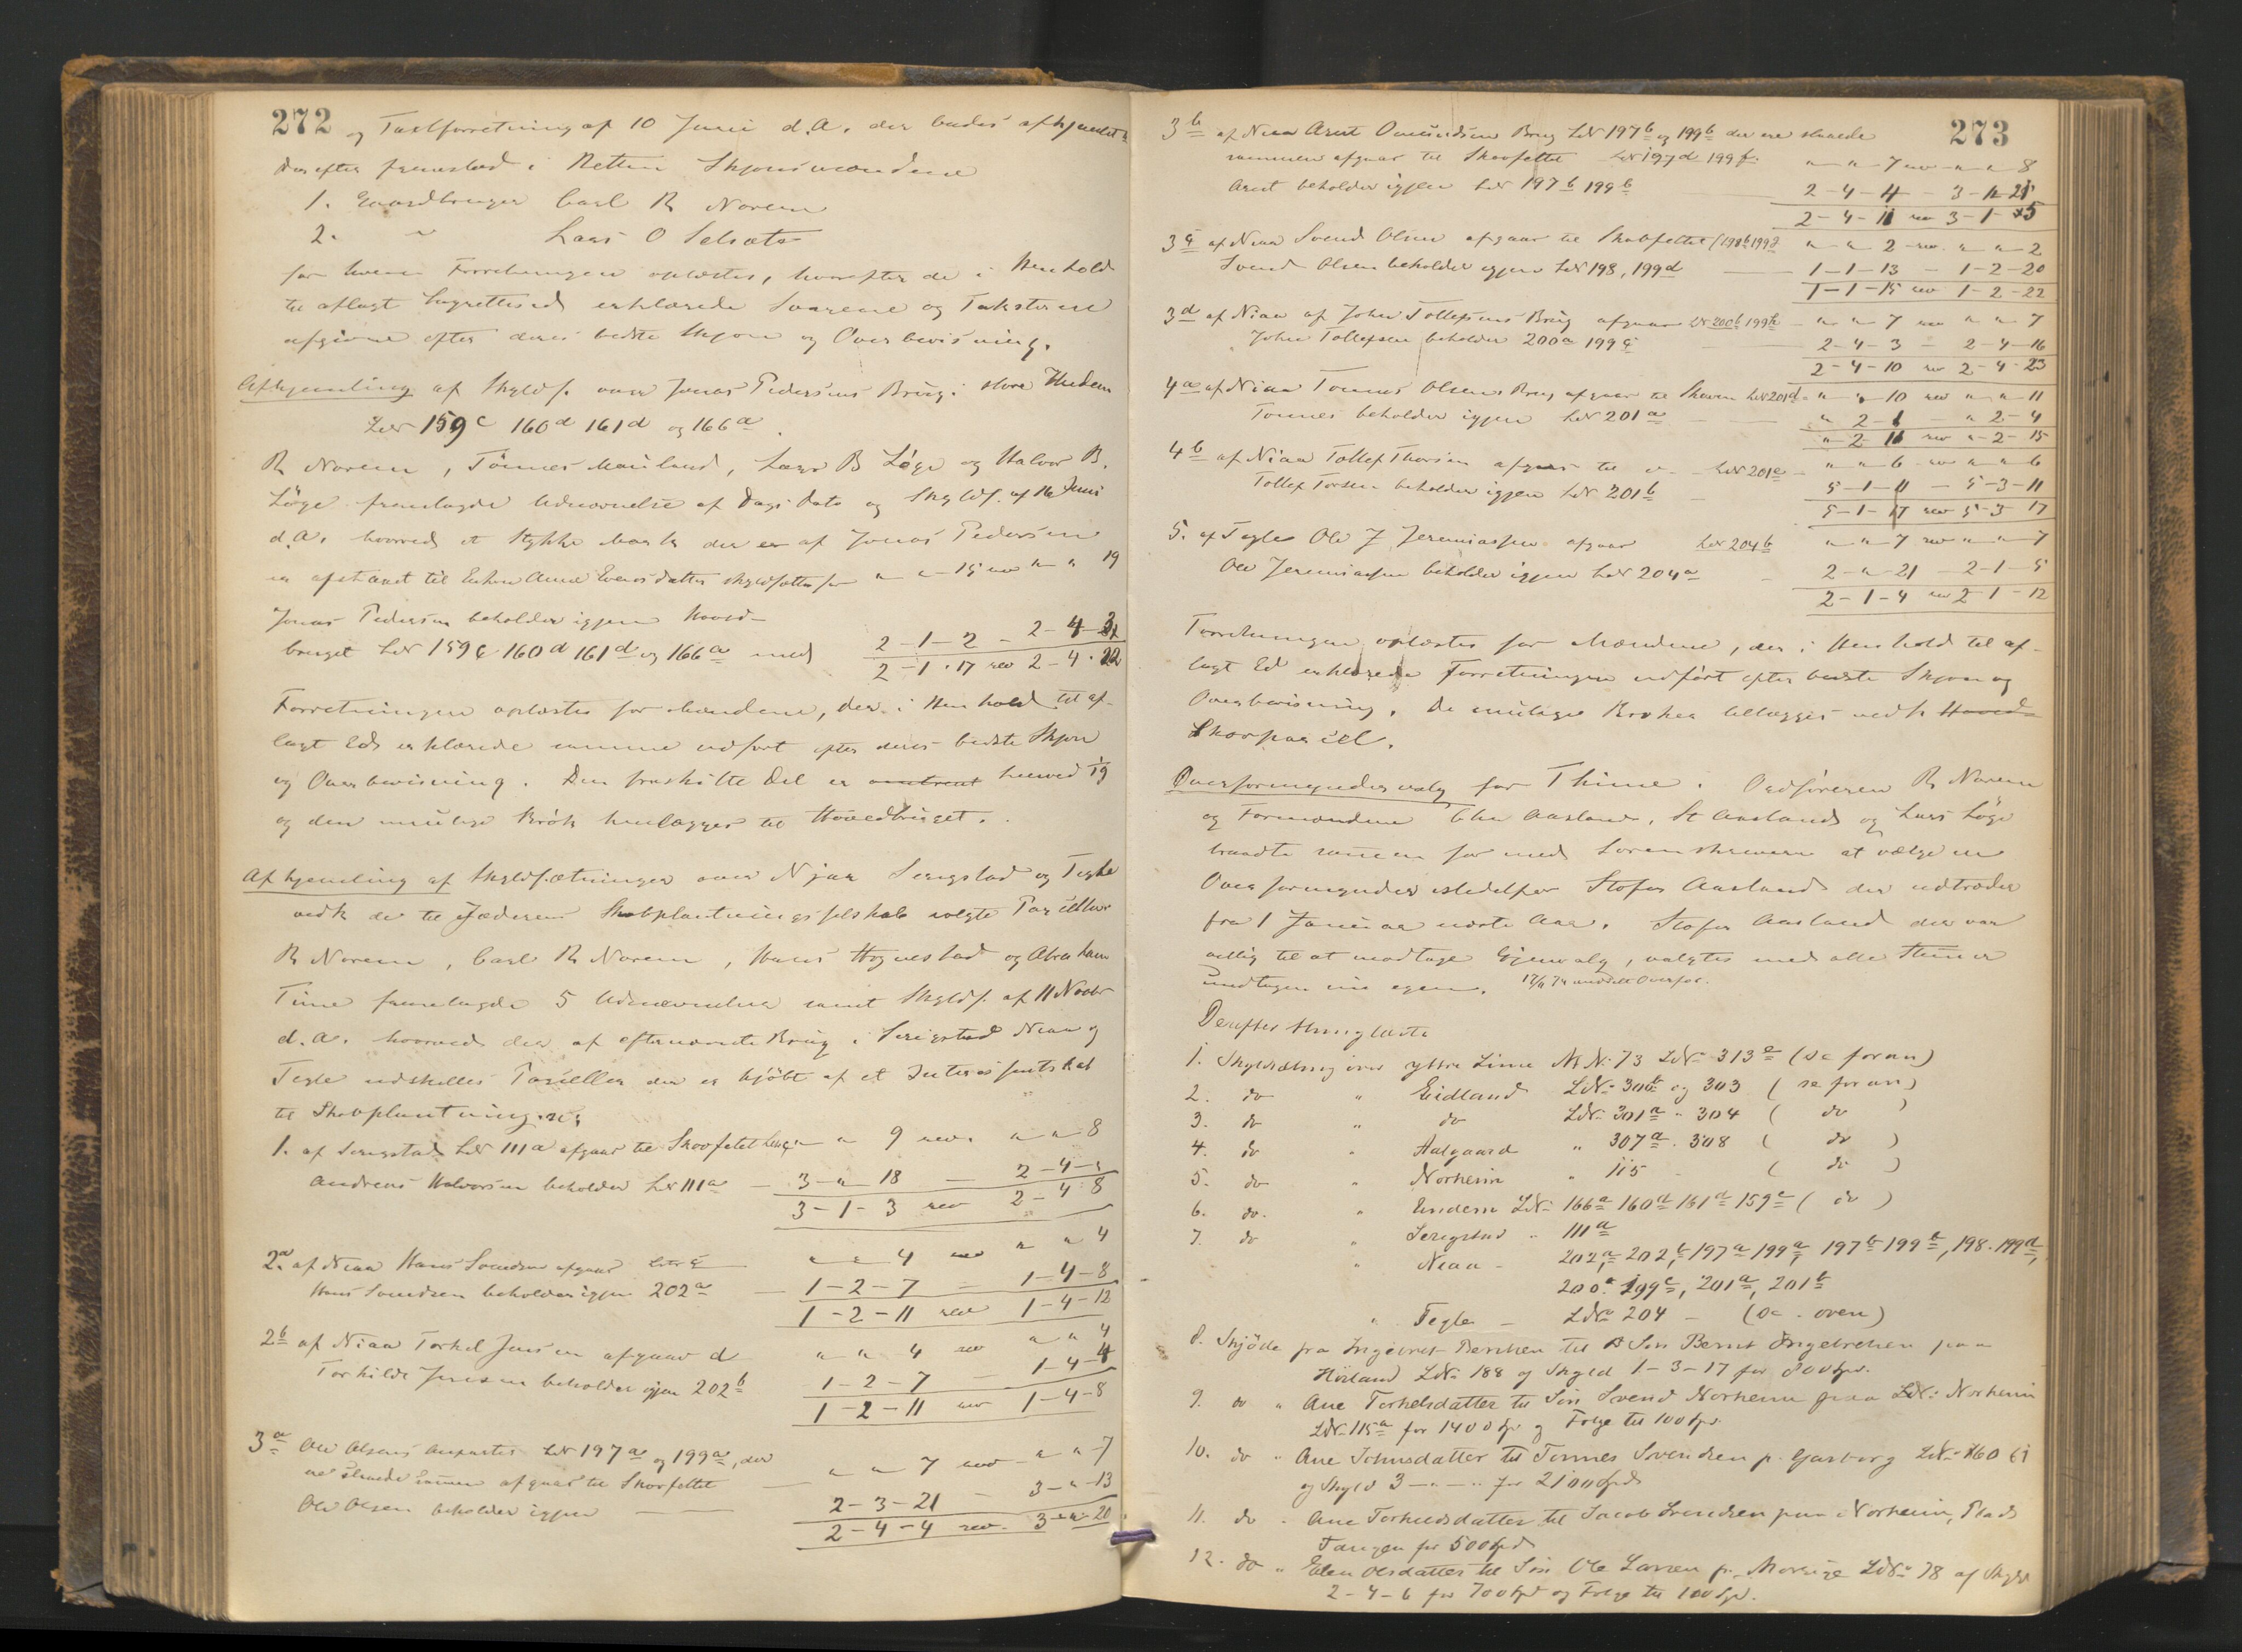 272
og Taxtforretning af 10 Juni d.A. der bades afhjemlet
Derefter fremstod i Retten Skjønsmændene
1. Gaardbruger Carl R Norem
2. " Lars O Selvete
for hvem Forretningen oplæstes, hvorefter de i Henhold
til aflagt Lagrettesed erklærede Svarene og Taksterne
afgivne efter deres bedste Skjøn og Overbevisning.
Afhjemling af Skyldf. over Jonas Pedersens Brug i store Undem
LNr 159c 160d 161d og 166a.
R Norem, Tønnes Mauland, Lars B Løge og Halvor B.
Løge fremlagde Udnævnelse af Dags Dato og Skyldf. af 16 Juni
d.A. hvorved et Stykke Mark der er af Jonas Pedersen
er afstaaet til Enken Anne Evensdatter skyldsættes for " " 15 rev " " 19
Jonas Pedersen beholder igjen Hoved-
bruget LNr 159c 160d 161d og 166a med 2-1-2 - 2-4-3
2-1-17 rev 2-4-22
Forretningen oplæstes for Mændene, der i Henhold til af-
lagt Ed erklærede samme udført efter deres bedste Skjøn
og Overbevisning. Den fraskilte Del er omtrent herved
og den umulige Brøk henlægges til Hovedbruget.
Afhjemling af Skyldsætninger over Njaa Serigstad og Tegle
vedk de til Jæderens Skovplantningsselskab solgte Parceller
R Norem, Carl R Norem, Hans Hognestad og Abraham
Time fremlagde 5 Udnævnelser samt Skyldf. af 11 Novbr
d.A. hvorved der af efternævnte Brug i Serigstad Niaa og
Tegle udskilles Parceller der er kjøbt af et Interessentskab
til Skovplantning.
1. af Serigstad LNr 111a afgaar til Skovfeltet " " 9 rev. " " 8
Andreas Halvorsen beholder LNr 111a - 3-"-18 - 2-4-"
3-1-3 rev 2-4-8
2a af Niaa Hans Svendsen afgaar " " 4 rev " " 4
Hans Svendsen beholder igjen 202a - 1-2-7 - 1-4-8
1-2-11 rev 1-4-12
2b af Niaa Torkel Jensen afgaar d " " 4 rev " " 4
Torkild Jensen beholder igjen 202b 1-2-7 - 1-4-4
1-2-11 rev 1-4-8
3a Ole Olsens Anparter LNr 197a og 199a, der
ere skuede sammen afgaar til Skovfeltet - " " 7 rev " " 7
Ole Olsen beholder igjen - 2-3-21 - 3-"-13
2-4-4 rev. 3-"-20
273
3b af Niaa Arent Omundsens Brug LNr 197b og 199b der ere skuede
sammen afgaar til Skovfeltet LNr 197d 199f " " 7 rev " " 8
Arent beholder igjen LNr 197b 199b 2-4-4 - 3-"-21
2-4-11 rev 3-1-5
3c af Niaa Svend Olsen afgaar til Skovfeltet (198b 199g " " 2 rev. " " 2
Svend Olsen beholder igjen LNr 198, 199d 1-1-13 - 1-2-20
1-1-15 rev 1-2-22
3d af Niaa af John Tollefsens Brug afgaar LNr 200b 199h " " 7 rev " " 7
John Tollefsen beholder 200a 199e 2-4-3 - 2-4-16
2-4-10 rev 2-4-23
4a af Niaa Tønnes Olsens Brug afgaar til Skoven LNr 201d " " 10 rev " " 11
Tønnes beholder igjen LNr 201a " 2-1 " 2-4
"-2-11 rev "-2-15
4b af Niaa Tollef Thorsen afgaar til " LNr 201e " " 6 rev " " 6
Tollef Torsen beholder igjen LNr 201b 5-1-11 - 5-3-11
5-1-17 rev 5-3-17
5. af Tegle Ole J Jeremiassen afgaar LNr 204b " " 7 rev " " 7
Ole Jeremiassen beholder igjen LNr 204a 2-"-21 - 2-1-5
2-1-4 rev 2-1-12
Forretningen oplæstes for Mændene, der i Henhold til af-
lagt Ed erklærede Forretningen udført efter bedste Skjøn og
Overbevisning. De umulige Brøker tillægges vedk Hoved-
Skovparcel.
Overformyndervalg for Thime. Ordføreren R Norem
og Formændene Aasland, St Aasland og Lars Løge
traadte sammen for med Sorenskriveren at vælge en
Overformynder istedetfor Stofer Aasland der udtræder
fra 1 Januar næste Aar. Stofer Aasland der var
villig til at modtage Gjenvalg, valgtes med alle Stemmer
undtagen sin egen. 17/11 74 meddelt Overfor.
Derefter thinglæste
1. Skyldsætning over yttre Lime MNr. 73 LNr 313e (se foran)
2. do " Eidland LNr 300b og 303 (se foran)
3. do " do LNr 301a " 304 ( do )
4. do " Aalgaard " 307a. 308 ( do )
5. do " Norheim " 115 - ( do )
6. do. " Undem LNr 166a 160d 161a 159c ( do )
7. do " Serigstad " 111a
" Niaa - 202a, 202b, 197a 199a, 197b 199b, 198. 199d,
200a 199e, 201a, 201b
" Tegle - LNr 204 - (se oven)
8. Skjøde fra Ingebret Berntsen til Søn Bernt Ingebretsen paa
Høiland LNr 188 og Skyld 1-3-17 for 800 Spd.
9. do " Ane Torkelsdatter til Søn Svend Norheim paa LNr: Norheim
LNr 115a for 1400 Spd og Folge til 100 Spd.
10. do " Ane Johnsdatter til Tønnes Svendsen p. Garborg LNr 160 61
og Skyld 3-"-" for 2100 Spd
11. do " Ane Torkildsdatter til Jacob Svendsen paa Norheim, Plads
Tangen for 500 Spd
12. do " Elen Olsdatter til Søn Ole Larsen p. Mossige LNr 78 af Skyld
2-4-6 for 700 Spd og Folge til 100 Spd.